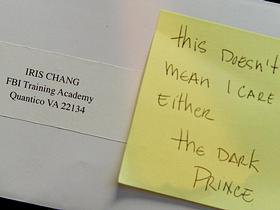 IRIS CHANG
FBI Training Academy
Quantico VA 22134
this DOESN'T
MEAN I CARE
EITHER
the DARK
PRINCE